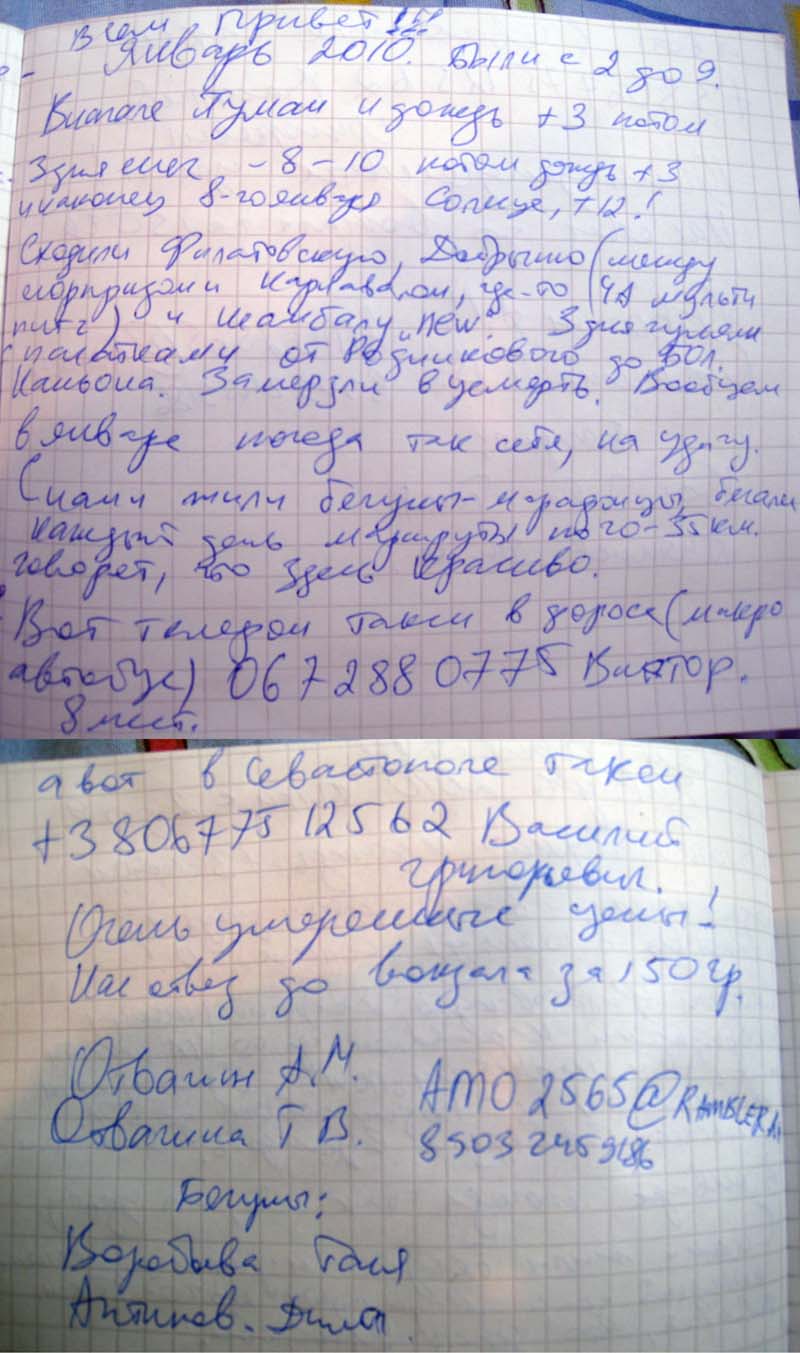 Всем привет!!!
Январь 2010. Были с 2 до 9.
Вначале Туман и дождь +3 потом
3 дня снег -8 -10 потом дождь +3
и наконец 8-го января Солнце, +12!
Сходили Филатовскую, Добрыню (между
сюрпризом и Карнавалом, где-то 4А мульти
питч) и Шамбалу "new". 3 дня гуляли
с палатками от Родникового до Бол.
Каньона. Замерзли в усмерть. Вообщем
в январе погода так себе, на удачу.
С нами жили бегуны-марафонцы, бегали
каждый день маршруты по 20-35 км.
говорят, что здесь красиво.
Вот телефон такси в (микро
автобус) 067 288 0775 Виктор.
8 мест.
а вот в Севастополе такси
+380677512562 Василий
Григорьевич.
Очень умеренные цены!
Нас отвез до вокзала за 150 гр.
Отвагин А.М. AMO2565@RAMBLER.
Отвагина Т В. 8903 2459186
Бегуны:
Воробьева Таня
Антипов